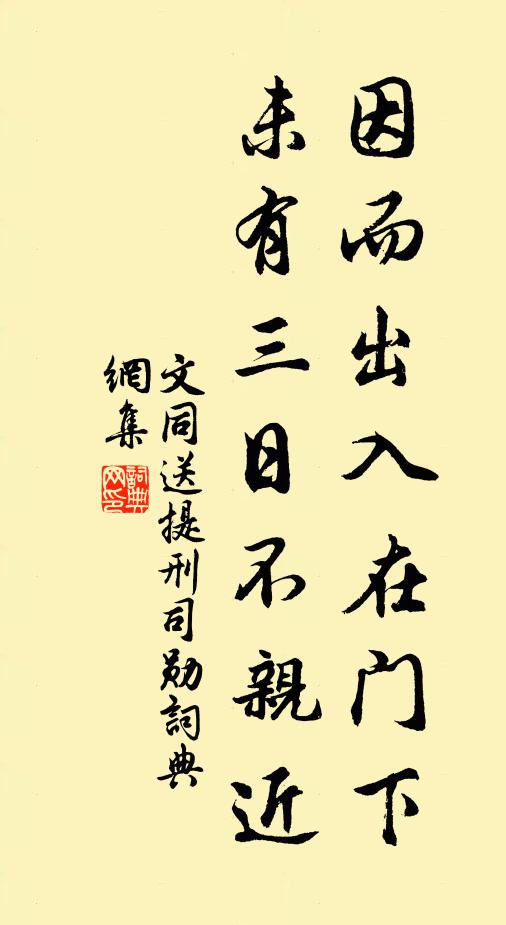 因而出入在门下
未有三日不親近
文同送提刑司勋詞典
網集
詞典
网印